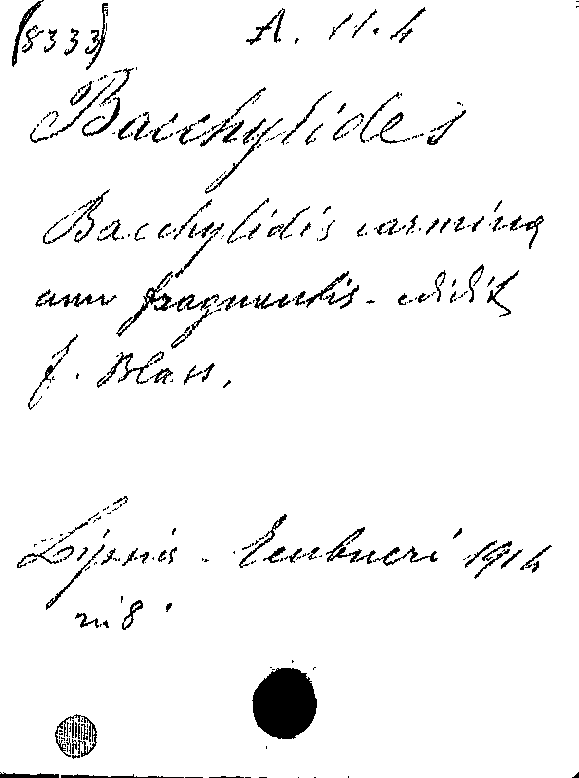 (8333) A. 11. 4
Bacchylides
Bacchylidis carmina
cum fragmentis - edidit
F. Blass.
Lipsiæ - Teubneri 1914
in 8°